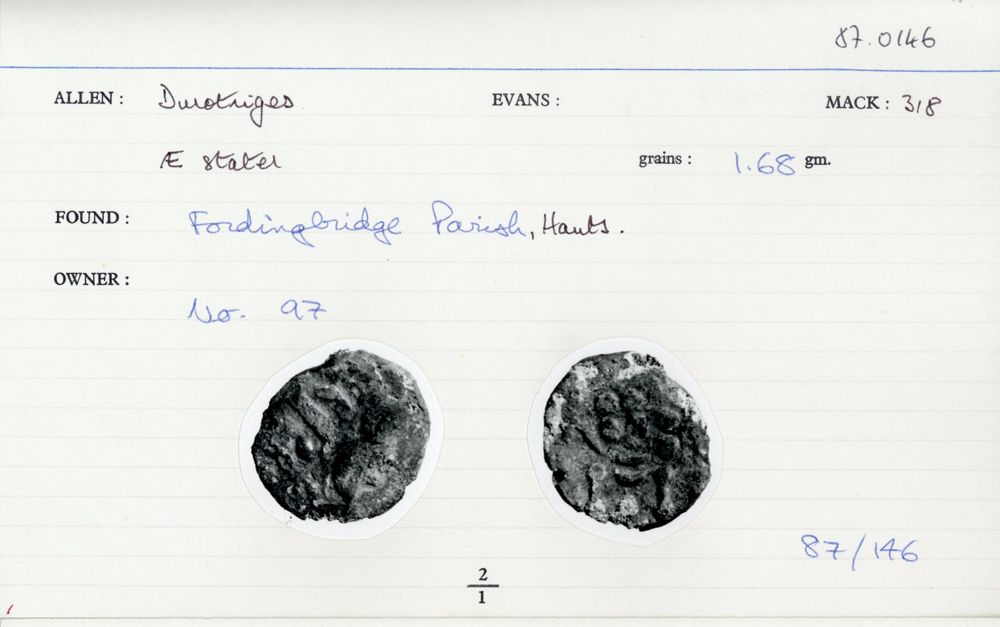 87.0146
ALLEN : Durotriges EVANS : MACK : 318
Æ stater grains : 1.68 gm.
FOUND : Fordingbridge Parish, Hants.
OWNER :
No. 97
87/146
2
1